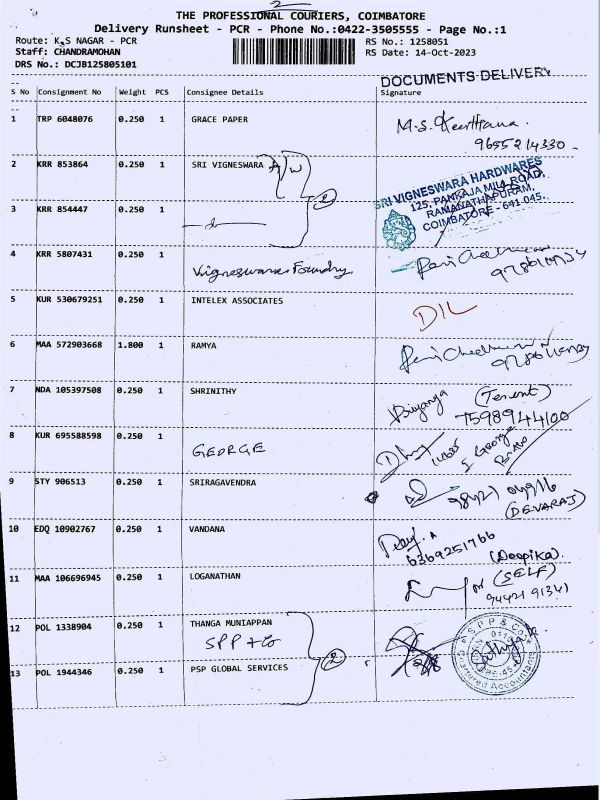 2
THE PROFESSIONAL COURIERS, COIMBATORE
Delivery Runsheet - PCR - Phone No.:0422-3505555 - Page No.:1
Route: K.S NAGAR - PCR RS No.: 1258051
Staff: CHANDRAMOHAN RS Date: 14-Oct-2023
DRS No.: DCJB125805101
DOCUMENTS DELIVERY
S No Consignment No Weight PCS Consignee Details Signature
1 TRP 6048076 0.250 1 GRACE PAPER M.S. Keerthana
9655214330
2 KRR 853864 0.250 1 SRI VIGNESWARA H/W
SRI VIGNESWARA HARDWARES
125, PANKAJA MILL ROAD,
RAMANATHAPURAM,
COIMBATORE - 641 045.
3 KRR 854447 0.250 1 2
4 KRR 5807431 0.250 1 Vigneswara Foundry
5 KUR 530679251 0.250 1 INTELEX ASSOCIATES DIL
6 MAA 572903668 1.800 1 RAMYA
7 NDA 105397508 0.250 1 SHRINITHY (Tenent)
7598944100
8 KUR 695588598 0.250 1 GEORGE George
9 STY 906513 0.250 1 SRIRAGAVENDRA
(DEVARAJ)
10 EDQ 10902767 0.250 1 VANDANA
6369251766
(Deepika).
11 MAA 106696945 0.250 1 LOGANATHAN (SELF)
9442191341
12 POL 1338904 0.250 1 THANGA MUNIAPPAN
SPP + Co
2
13 POL 1944346 0.250 1 PSP GLOBAL SERVICES
SPP & Co
Accountants